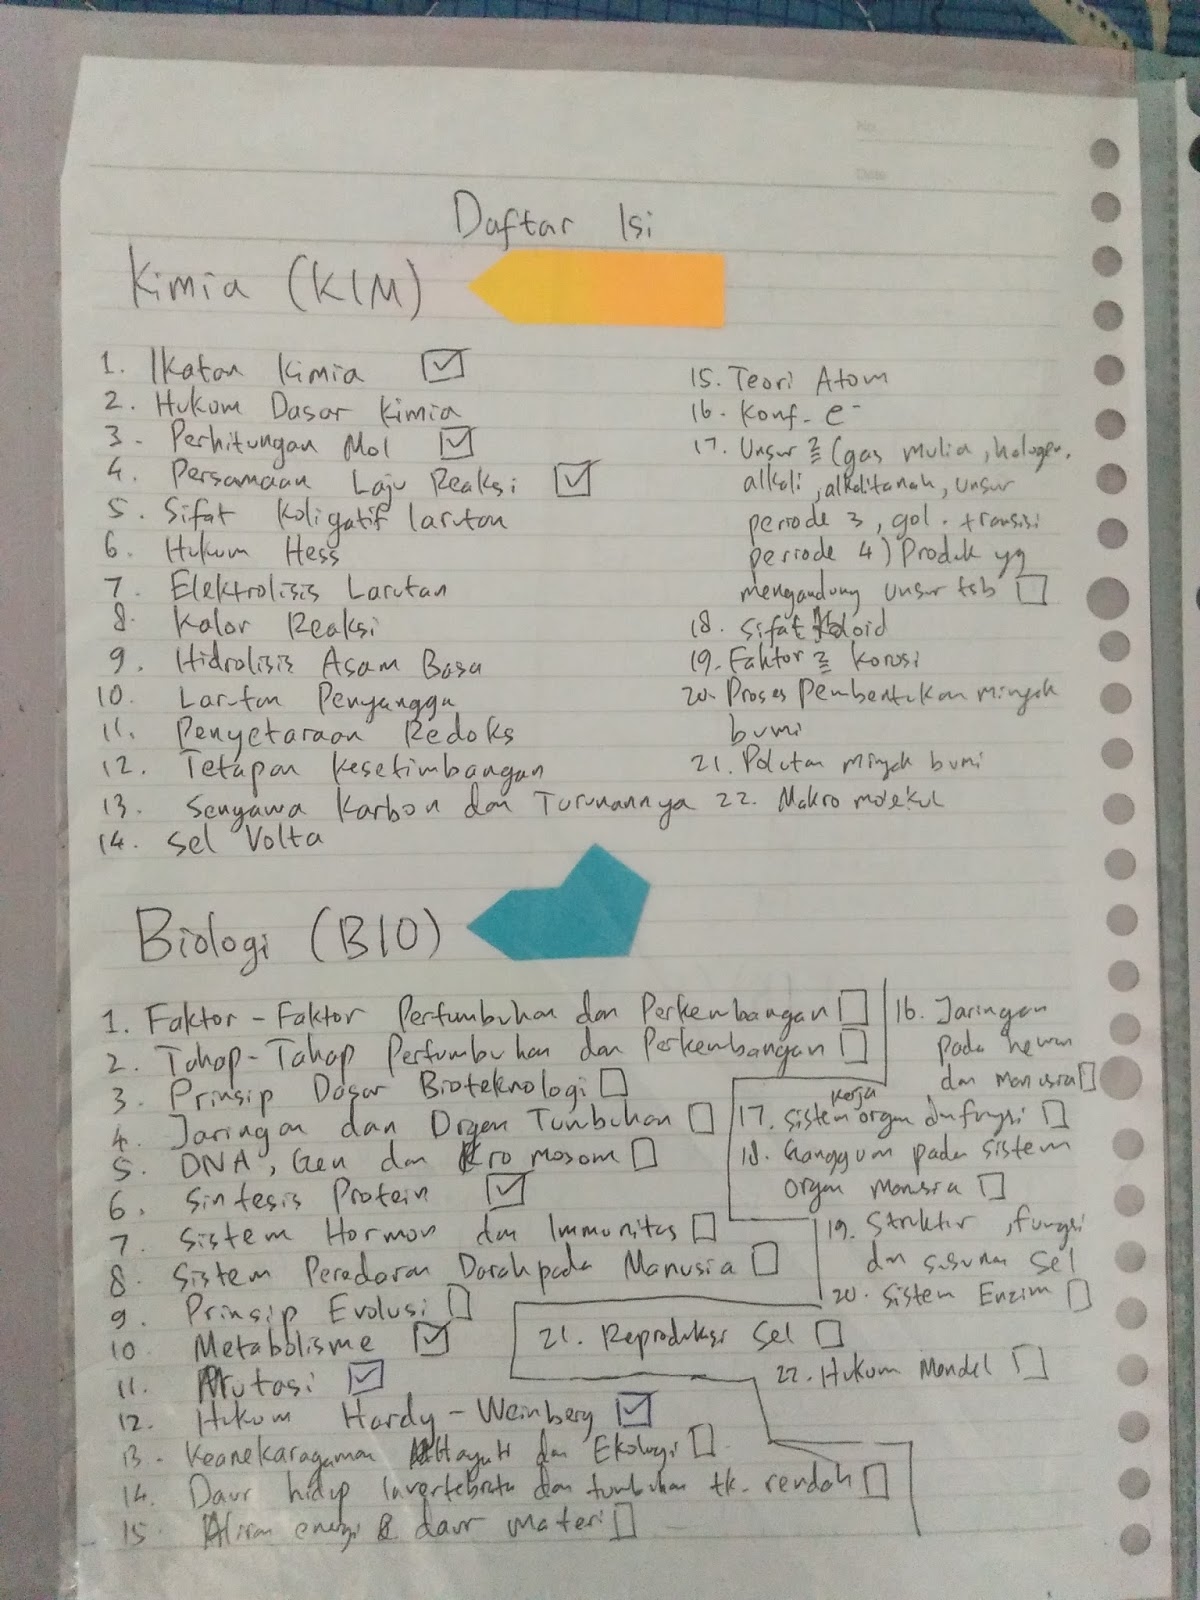 Daftar Isi
Kimia (KIM)
1. Ikatan Kimia
2. Hukum Dasar Kimia
3. Perhitungan Mol
4. Persamaan Laju Reaksi
5. Sifat Koligatif Larutan
6. Hukum Hess
7. Elektrolisis Larutan
8. Kalor Reaksi
9. Hidrolisis Asam Basa
10. Larutan Penyangga
11. Penyetaraan Redoks
12. Tetapan Kesetimbangan
13. Senyawa Karbon dan Turunannya
14. Sel Volta
15. Teori Atom
16. Konf. e-
17. Unsur2 (gas mulia, halogen,
alkali, alkali tanah, unsur
periode 3, gol. transisi
periode 4) Produk yg
mengandung unsur tsb
18. Sifat Koloid
19. Faktor2 korosi
20. Proses Pembentukan minyak
bumi
21. Polutan minyak bumi
22. Makromolekul
Biologi (BIO)
1. Faktor-Faktor Pertumbuhan dan Perkembangan
2. Tahap-Tahap Pertumbuhan dan Perkembangan
3. Prinsip Dasar Bioteknologi
4. Jaringan dan Organ Tumbuhan
5. DNA, Gen dan Kromosom
6. Sintesis Protein
7. Sistem Hormon dan Immunitas
8. Sistem Peredaran Darah pada Manusia
9. Prinsip Evolusi
10 Metabolisme
11. Mutasi
12. Hukum Hardy-Weinberg
13. Keanekaragaman Hayati dan Ekologi
14. Daur hidup Invertebrata dan tumbuhan tk. rendah
15. Aliran energi & daur materi
16. Jaringan
pada hewan
dan manusia
kerja
17. Sistem organ dan fungsi
18. Gangguan pada sistem
organ manusia
19. Struktur, fungsi
dan susunan sel
20. Sistem Enzim
21. Reproduksi Sel
22. Hukum Mendel